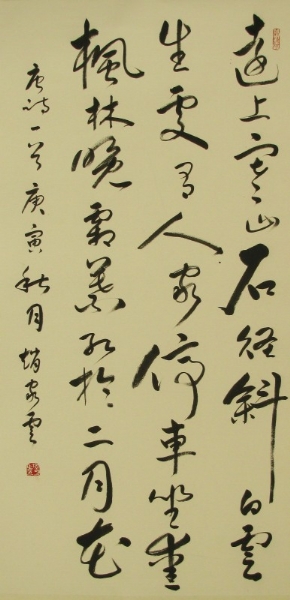 遠上寒山石径斜白雲
生處有人家停車坐愛
楓林晚霜葉紅於二月花
唐詩一首庚寅秋月趙家雲